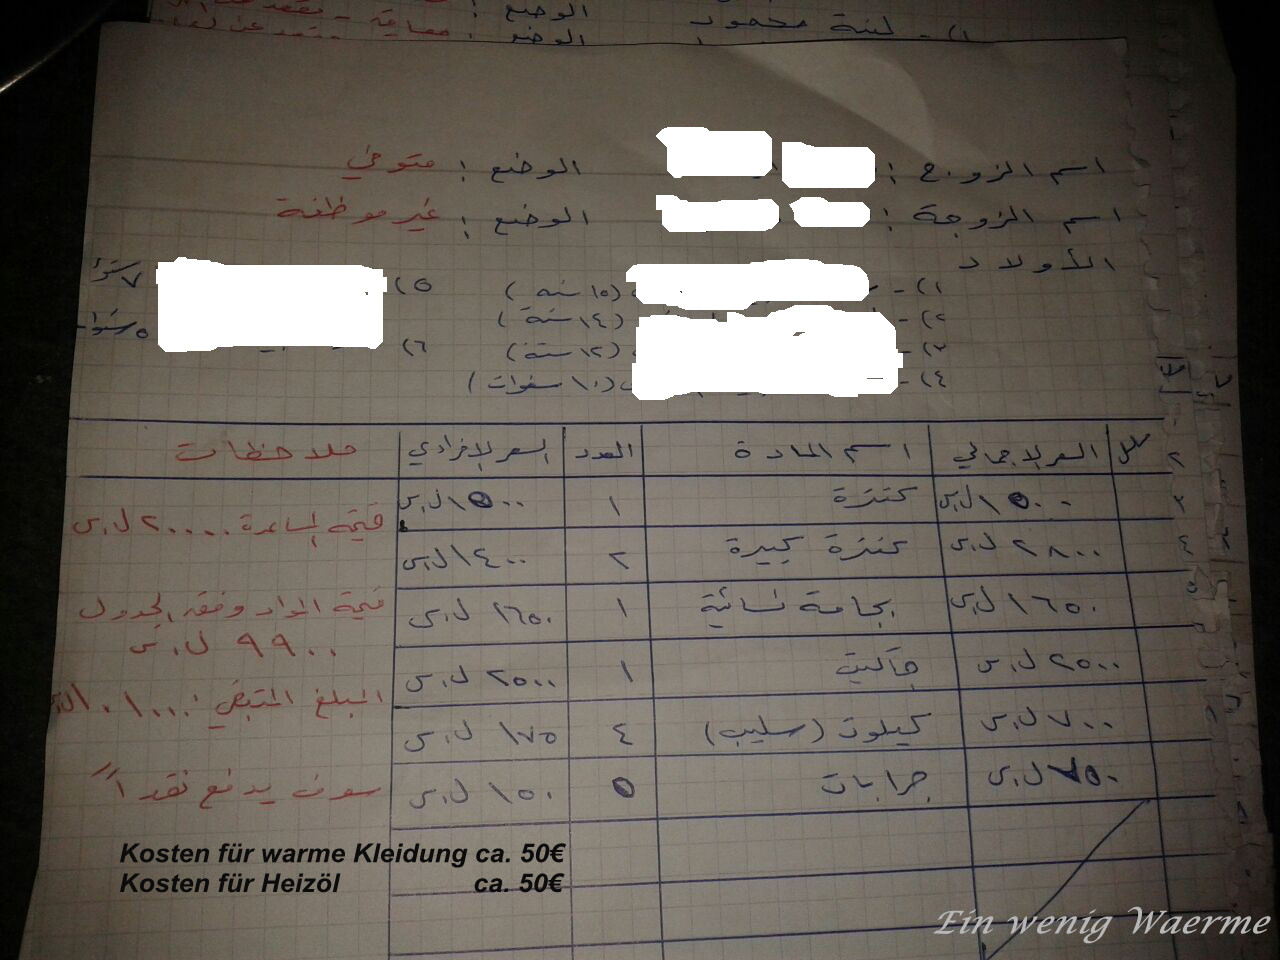 ١) - لبنة محمود الوضع :
الوضع :
اسم الزوج : الوضع : متوفي
اسم الزوجة : الوضع : غير موظفة
الأولاد
١) - (١٥ سنة)
٢) - (١٤ سنة)
٣) - (١٢ سنة)
٤) - (١٠ سنوات)
٥) ٧ سنوات
٦) ٥ سنوات
السعر الإجمالي اسم المادة العدد السعر الإفرادي ملاحظات
١٥٠٠ ل.س كنزة ١ ١٥٠٠ ل.س
٢٨٠٠ ل.س كنزة كبيرة ٢ ١٤٠٠ ل.س
١٦٥٠ ل.س بجامة نسائية ١ ١٦٥٠ ل.س
٢٥٠٠ ل.س جاكيت ١ ٢٥٠٠ ل.س
٧٠٠ ل.س كيلوت (سليب) ٤ ١٧٥ ل.س
٧٥٠ ل.س جرابات ٥ ١٥٠ ل.س
قيمة المساعدة ٢٠٠٠٠ ل.س
قيمة المواد وفقه الجدول
٩٩٠٠ ل.س
المبلغ المتبقي : ١٠١٠٠ ل.س
سوف يدفع نقداً
Kosten für warme Kleidung ca. 50€
Kosten für Heizöl ca. 50€
Ein wenig Waerme